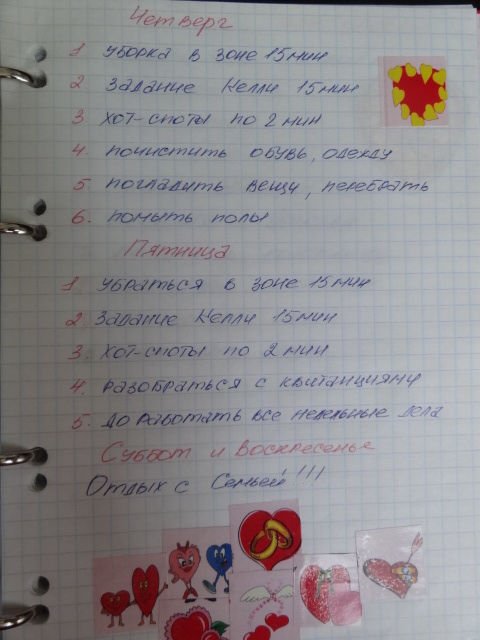 Четверг
1. уборка в зоне 15 мин
2. задание Келли 15 мин
3. хот-споты по 2 мин
4. почистить обувь, одежду
5. погладить вещи, перебрать
6. помыть полы
Пятница
1. убраться в зоне 15 мин
2. задание Келли 15 мин
3. хот-споты по 2 мин
4. разобраться с квитанциями
5. до работать все недельные дела
Суббот и Воскресенье
Отдых с Семьёй!!!